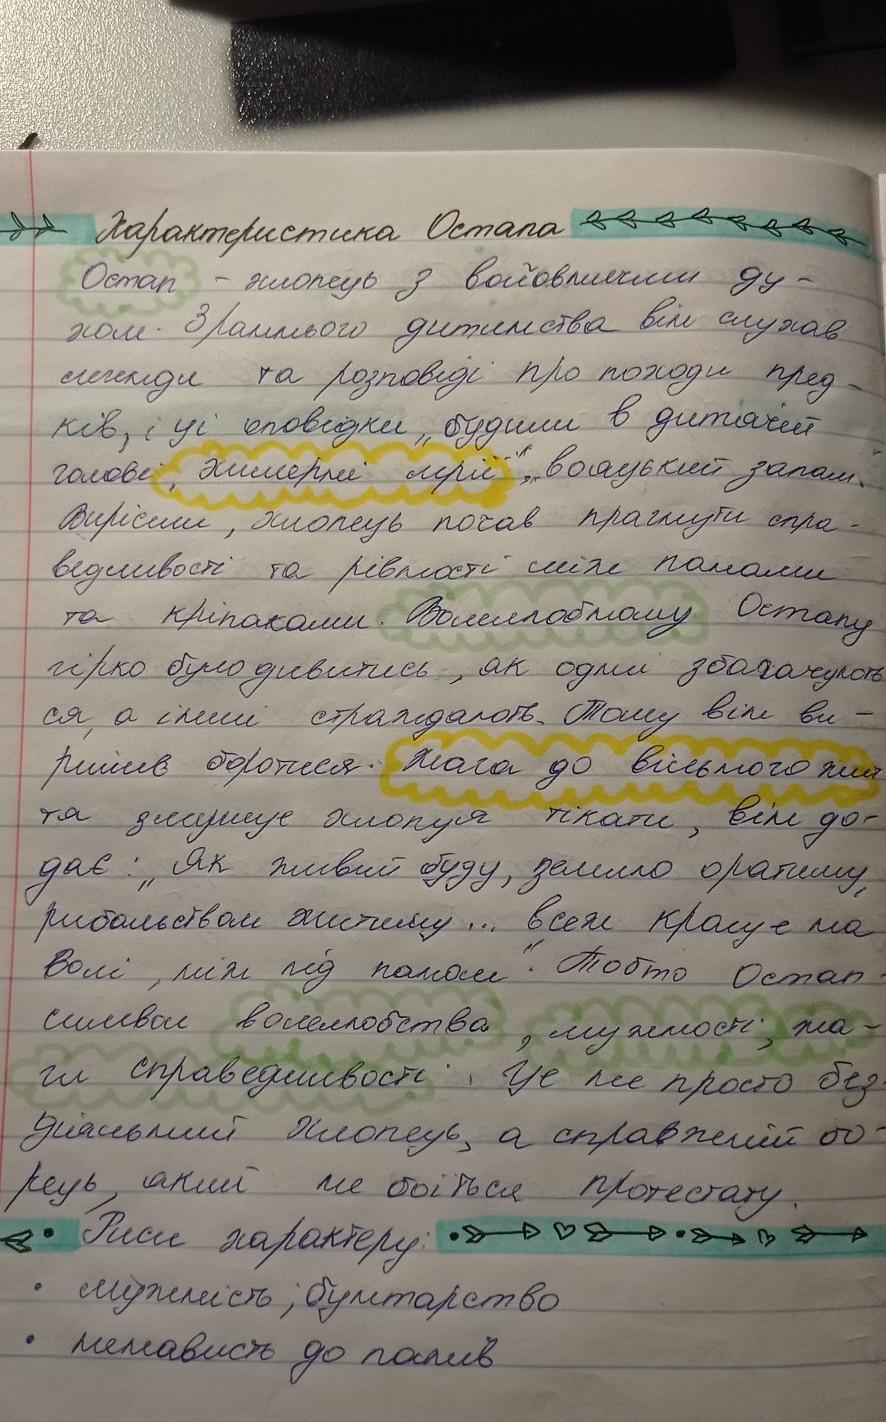 Характеристика Остапа
Остап - хлопець з войовничим ду-
хом. З раннього дитинства він слухав
легенди та розповіді про походи пред-
ків, і ці оповідки „будили в дитячій
голові „химерні мрії", „козацький запал".
Вирісши, хлопець почав прагнути спра-
ведливості та рівності між панами
та кріпаками. Волелюбному Остапу
гірко було дивитись, як одні збагачують
ся, а інші страждають. Тому він ви-
рішив боротися. Жага до вільного жит
тя змушує хлопця тікати, він до-
дає: „Як живий буду, землю оратиму,
рибальством житиму... все ж краще на
волі, ніж під паном". Тобто Остап-
символ волелюбства, мужності, жа-
ги справедливості. Це не просто без-
діяльний хлопець, а справжній бо-
рець, який не боїться протестату.
Риси характеру:
• мужність; бунтарство
• ненависть до панів